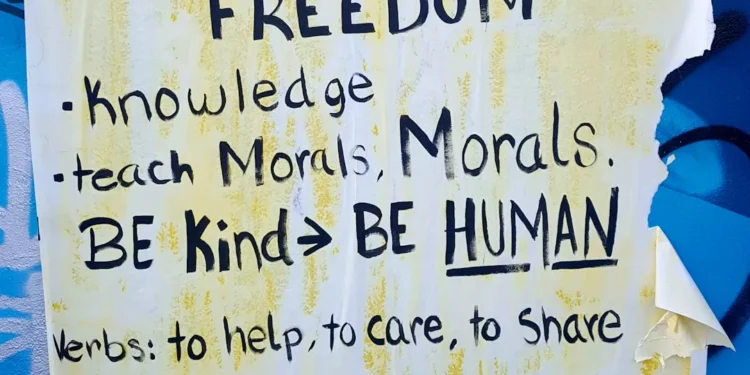 FREEDOM
• Knowledge
• teach Morals, Morals.
BE Kind → BE HUMAN
Verbs: to help, to care, to Share